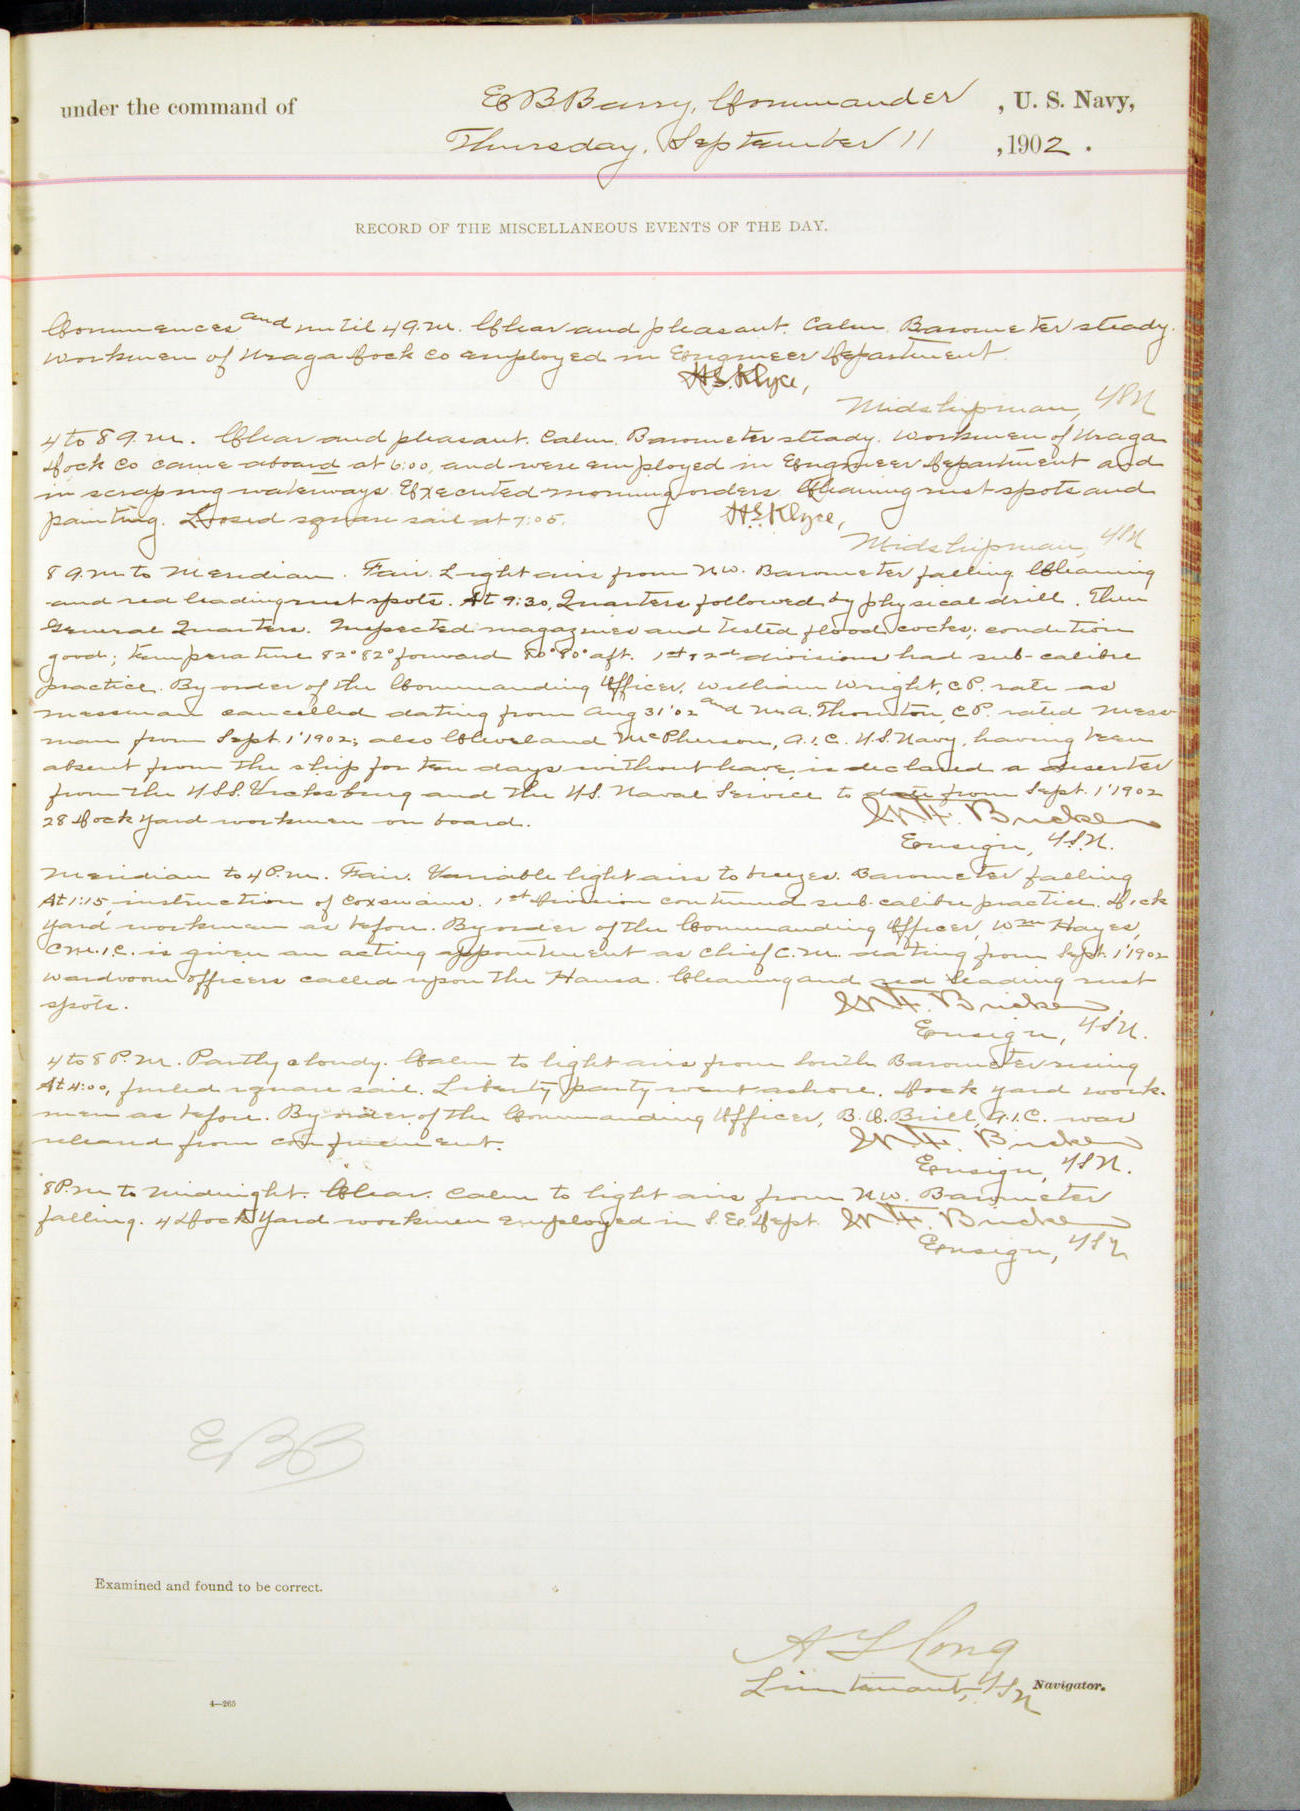 under the command of E B Barry, Commander , U. S. Navy,
Thursday, September 11 , 1902 .
RECORD OF THE MISCELLANEOUS EVENTS OF THE DAY.
Commences and until 4 A.M. Clear and pleasant. Calm. Barometer steady.
Workmen of Uraga Dock Co employed in Engineer Department.
H.S. Klyce,
Midshipman, USN
4 to 8 A.M. Clear and pleasant. Calm. Barometer steady. Workmen of Uraga
Dock Co came aboard at 6:00, and were employed in Engineer Department and
in scraping waterways. Executed morning orders. Cleaning rust spots and
painting. Loosed square sail at 7:05.
H.S. Klyce,
Midshipman, USN
8 A.M. to Meridian. Fair. Light airs from N.W. Barometer falling. Cleaning
and red leading rust spots. At 9:30, Quarters followed by physical drill. Then
General Quarters. Inspected magazines and tested flood cocks; condition
good; temperature 82° 82° forward 80° 80° aft. 1st & 2nd divisions had sub-calibre
practice. By order of the Commanding Officer, William Wright, C.P. rate as
messman cancelled dating from Aug 31 '02 and M.A. Thornton, C.P. rated mess-
man from Sept. 1 '1902; also Cleveland McPherson, A.1.C. U.S. Navy, having been
absent from the ship for ten days without leave, is declared a deserter
from the U.S.S. Vicksburg and the U.S. Naval Service to date from Sept. 1 '1902
28 Dock yard workmen on board.
Ensign, U.S.N.
Meridian to 4 P.M. Fair. Variable light airs to breezes. Barometer falling
At 1:15, instruction of coxswains. 1st Division continued sub-calibre practice. Dock
yard workmen as before. By order of the Commanding Officer, Wm Hayes,
C.M.1.C. is given an acting appointment as Chief C.M. dating from Sept. 1 '1902
Wardroom officers called upon the Hansa. Cleaning and red leading rust
spots.
Ensign, USN.
4 to 8 P.M. Partly cloudy. Calm to light airs from South. Barometer rising
At 4:00, furled square sail. Liberty party went ashore. Dock yard work-
men as before. By order of the Commanding Officer, B. C. Brill, A.1.C. was
released from confinement.
Ensign, USN.
8 P.M. to Midnight. Clear. Calm to light airs from N.W. Barometer
falling. 4 Dock Yard workmen employed in S.E. Dept.
Ensign, USN
EBB
Examined and found to be correct.
A S Long
Lieutenant, USN Navigator.
4—265